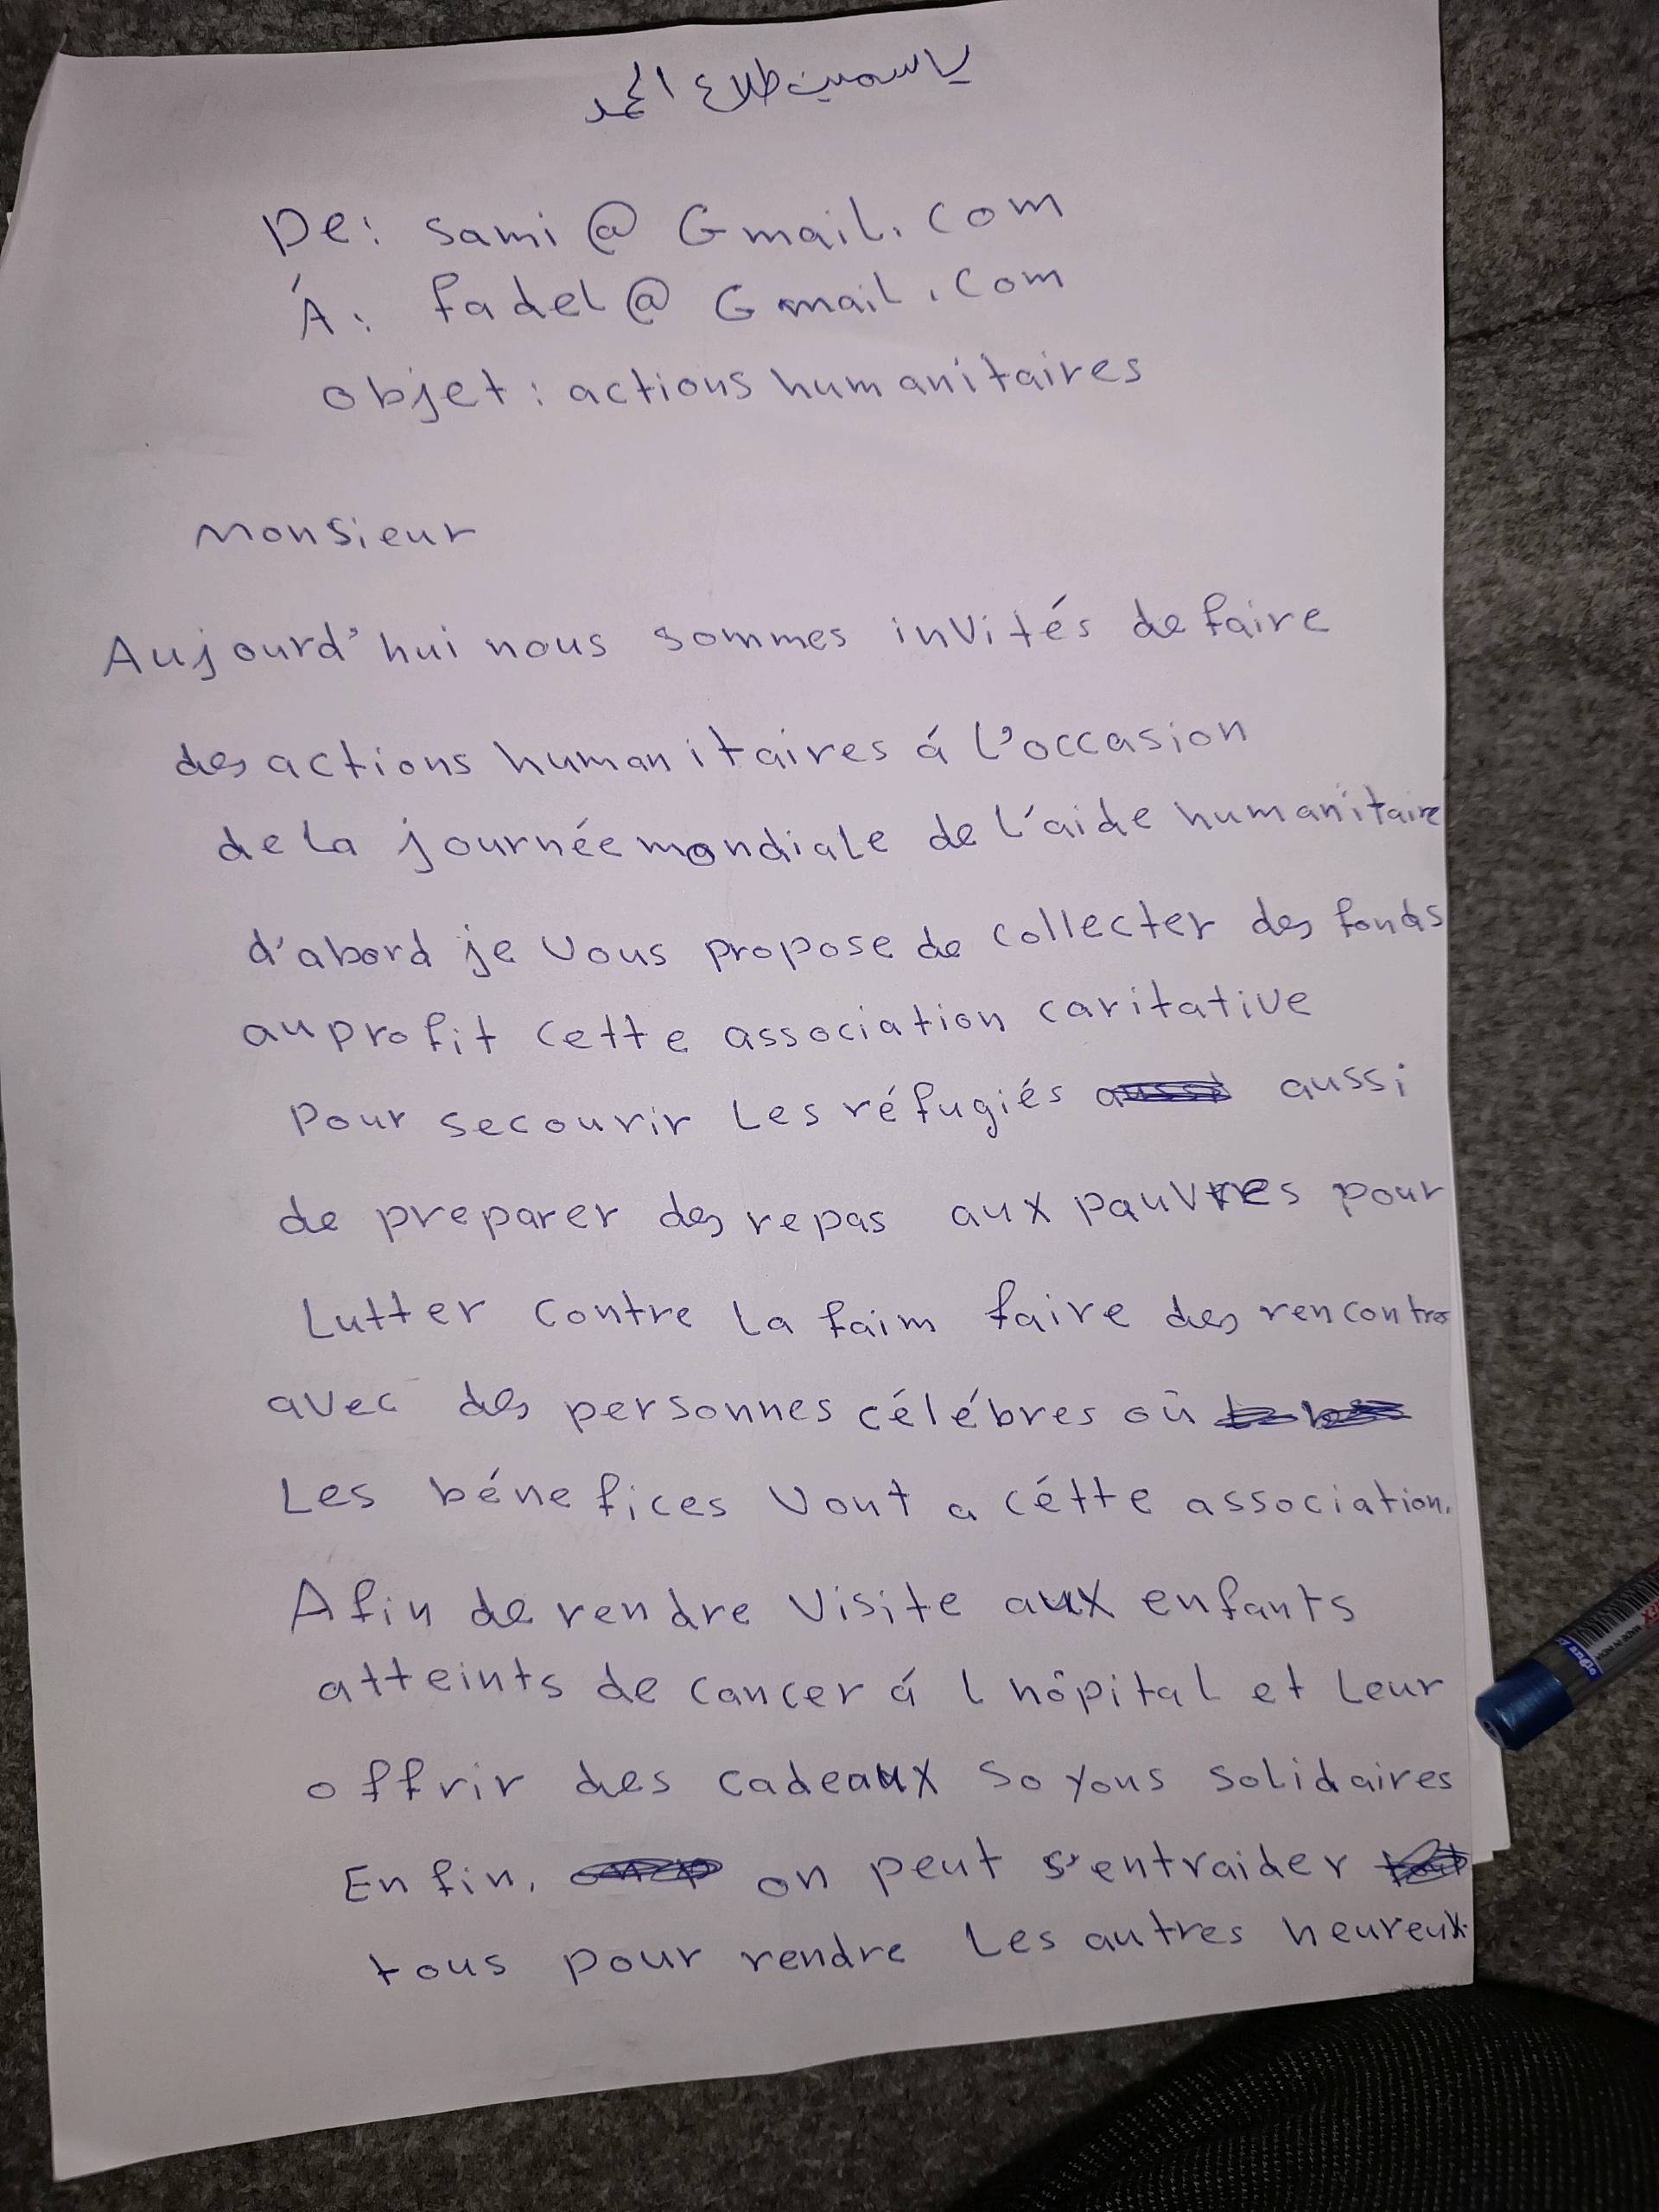 ياسمين طلاع المحمد
De: sami@Gmail.com
Á: fadel@Gmail.com
objet: actions humanitaires
Monsieur
Aujourd'hui nous sommes invités de faire
des actions humanitaires á l'occasion
de la journée mondiale de l'aide humanitaire
d'abord je vous propose de collecter des fonds
au profit cette association caritative
pour secourir les réfugiés aussi
de preparer des repas aux pauvres pour
Lutter contre la faim faire des rencontres
avec des personnes célébres où
Les bénefices vont a cétte association.
Afin de rendre visite aux enfants
atteints de cancer á l hôpital et leur
offrir des cadeaux soyons solidaires
Enfin, on peut s'entraider
tous pour rendre les autres heureux.